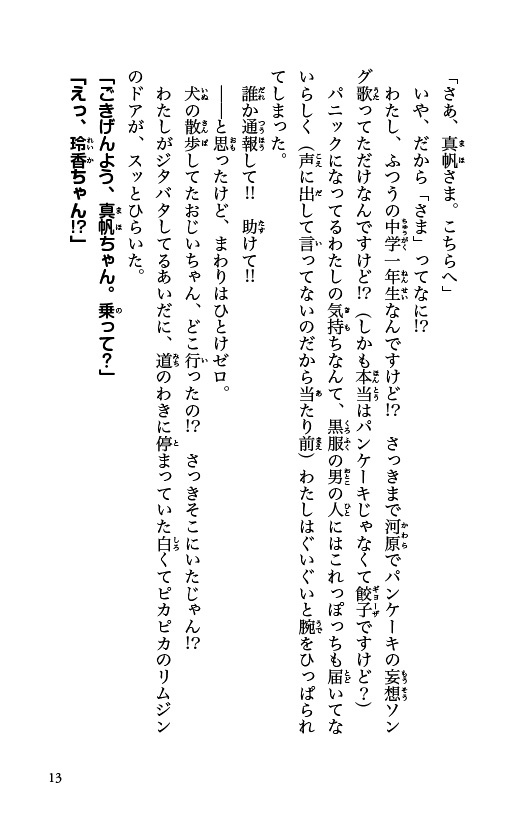 「さあ、真帆さま。こちらへ」
いや、だから「さま」ってなに!?
わたし、ふつうの中学一年生なんですけど!?　さっきまで河原でパンケーキの妄想ソン
グ歌ってただけなんですけど!?（しかも本当はパンケーキじゃなくて餃子ですけど？）
パニックになってるわたしの気持ちなんて、黒服の男の人にはこれっぽっちも届いてな
いらしく（声に出して言ってないのだから当たり前）わたしはぐいぐいと腕をひっぱられ
てしまった。
誰か通報して!!　助けて!!
――と思ったけど、まわりはひとけゼロ。
犬の散歩してたおじいちゃん、どこ行ったの!?　さっきそこにいたじゃん!?
わたしがジタバタしてるあいだに、道のわきに停まっていた白くてピカピカのリムジン
のドアが、スッとひらいた。
「ごきげんよう、真帆ちゃん。乗って？」
「えっ、玲香ちゃん!?」
13